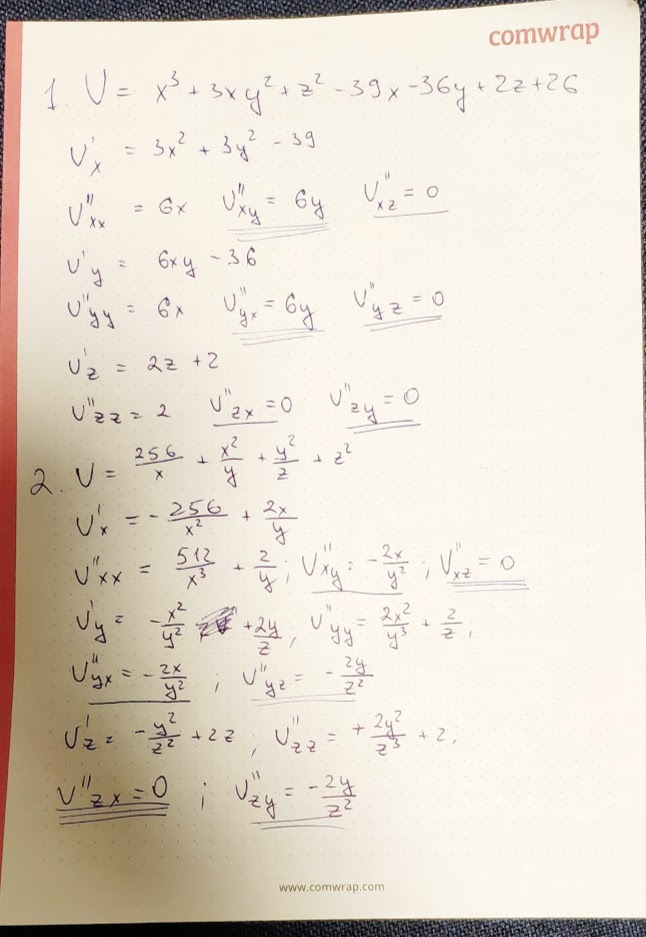 comwrap
1. U = x³ + 3xy² + z² - 39x - 36y + 2z + 26
U'x = 3x² + 3y² - 39
U''xx = 6x U''xy = 6y U''xz = 0
U'y = 6xy - 36
U''yy = 6x U''yx = 6y U''yz = 0
U'z = 2z + 2
U''zz = 2 U''zx = 0 U''zy = 0
2. U = 256/x + x²/y + y²/z + z²
U'x = - 256/x² + 2x/y
U''xx = 512/x³ + 2/y ; U''xy = - 2x/y² ; U''xz = 0
U'y = - x²/y² + 2y/z , U''yy = 2x²/y³ + 2/z ,
U''yx = - 2x/y² ; U''yz = - 2y/z²
U'z = - y²/z² + 2z , U''zz = + 2y²/z³ + 2,
U''zx = 0 ; U''zy = - 2y/z²
www.comwrap.com